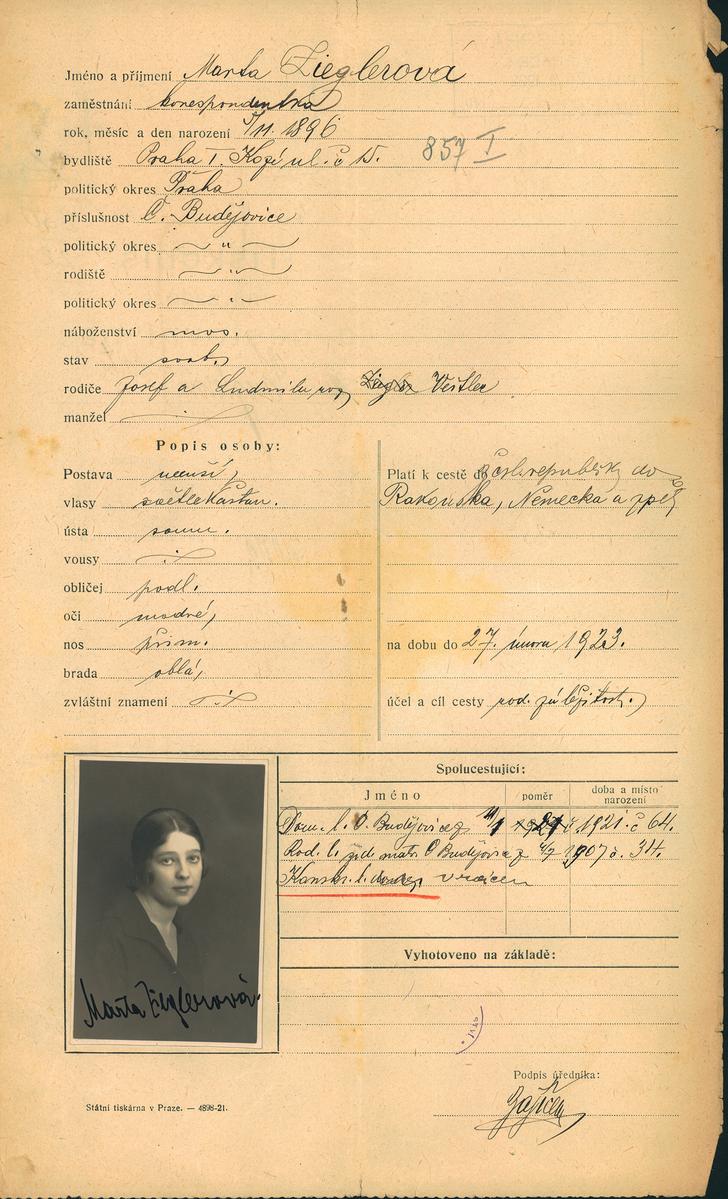 Jméno a příjmení Marta Zieglerová
zaměstnání korespondentka
rok, měsíc a den narození 5/11. 1896
bydliště Praha I. Kozí ul. č 15. 857 I
politický okres Praha
příslušnost Č. Budějovice
politický okres — " —
rodiště — " —
politický okres — " —
náboženství mos.
stav svob.
rodiče Josef a Ludmila roz.
manžel
Popis osoby:
Postava menší,
vlasy světlekaštan.
ústa soum.
vousy
obličej podl.
oči modré,
nos přim.
brada oblá,
zvláštní znamení
Platí k cestě do Čsl. republiky do
Rakouska, Německa a zpět
na dobu do 27. února 1923.
účel a cíl cesty rod. záležitost.
Spolucestující:
Jméno poměr doba a místo narození
Dom. l. Č. Budějovice z 1921 č 64.
Rod. l. žid. matr. Č Budějovice z 1907 č. 34.
Konskr. l. vrácen
Marta Zieglerová
Vyhotoveno na základě:
Podpis úředníka:
Státní tiskárna v Praze. — 4898-21.